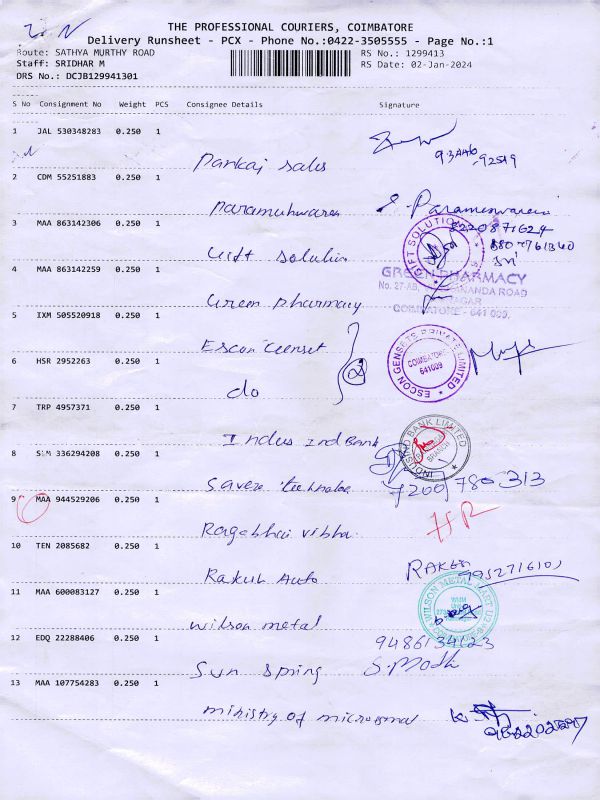 THE PROFESSIONAL COURIERS, COIMBATORE
Delivery Runsheet - PCX - Phone No.:0422-3505555 - Page No.:1
Route: SATHYA MURTHY ROAD
RS No.: 1299413
Staff: SRIDHAR M
RS Date: 02-Jan-2024
DRS No.: DCJB129941301
S No Consignment No Weight PCS Consignee Details Signature
1 JAL 530348283 0.250 1
Pankaj Sales
2 CDM 55251883 0.250 1
Parameshwaran S. Parameswaran
8220871624
3 MAA 863142306 0.250 1
Gift Solution
GIFT SOLUTION
4 MAA 863142259 0.250 1
Green Pharmacy
GREEN PHARMACY
COIMBATORE - 641 009.
5 IXM 505520918 0.250 1
Escon Genset
ESCON GENSETS PRIVATE LIMITED
COIMBATORE
641009
6 HSR 2952263 0.250 1
do
7 TRP 4957371 0.250 1
Indus Ind Bank
INDUSIND BANK LIMITED
BRANCH
8 336294208 0.250 1
7200780313
9 MAA 944529206 0.250 1
10 TEN 2085682 0.250 1
Rakub Auto
9952716101
11 MAA 600083127 0.250 1
Wilson metal
WILSON METAL MART
12 EDQ 22288406 0.250 1
9486134123
Sun Spring
13 MAA 107754283 0.250 1
ministry of